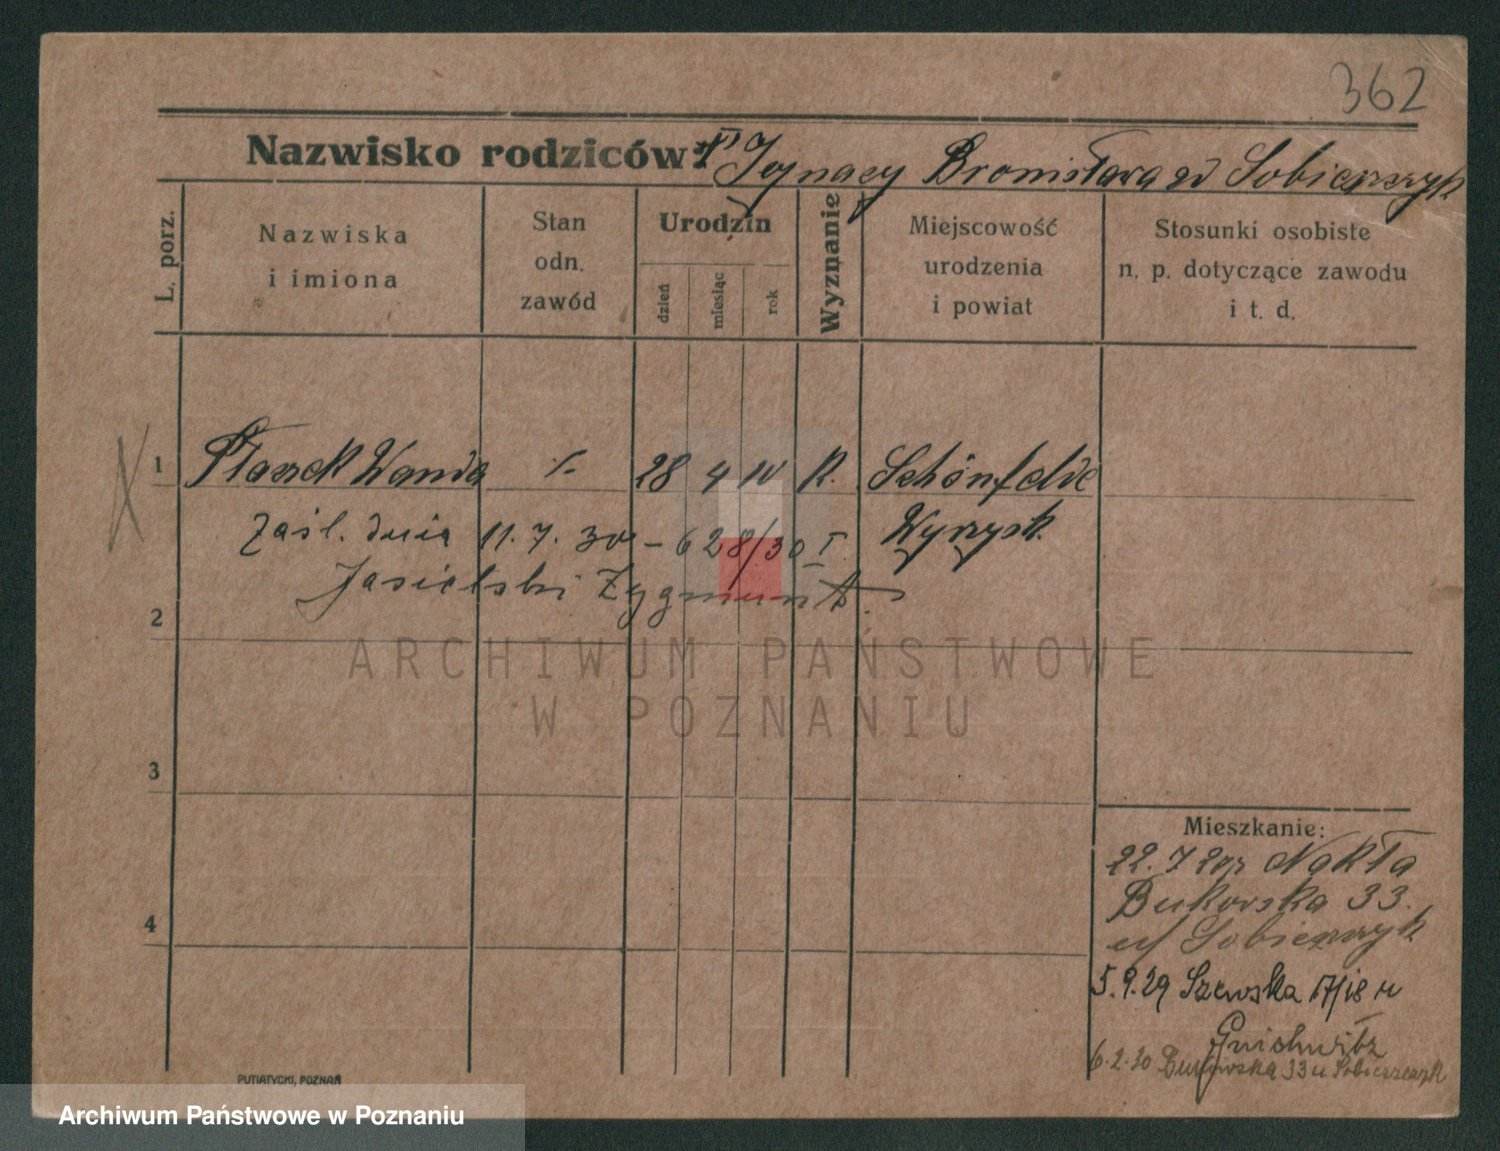 362
Nazwisko rodziców: Ignacy Bronisława zd Sobierszyk
L. porz.
Nazwiska i imiona
Stan odn. zawód
Urodzin
dzień
miesiąc
rok
Wyznanie
Miejscowość urodzenia i powiat
Stosunki osobiste n. p. dotyczące zawodu i t. d.
1 Ptaszek Wanda 28 4 10 R. Schönfelde
Zaśl. dnia 11.7.30 - 628/30 I Wyrzysk.
Jasielski Zygmunt
2
ARCHIWUM PAŃSTWOWE
W POZNANIU
3
Mieszkanie:
22.7 Nakła
Bukowska 33.
4
u/ Sobierszyk
5.9.29 Szewska 17/18 u
Gnichwitz
6.2.30 Bukowska 33 u Sobierszyk
PUTIATYCKI, POZNAŃ
Archiwum Państwowe w Poznaniu